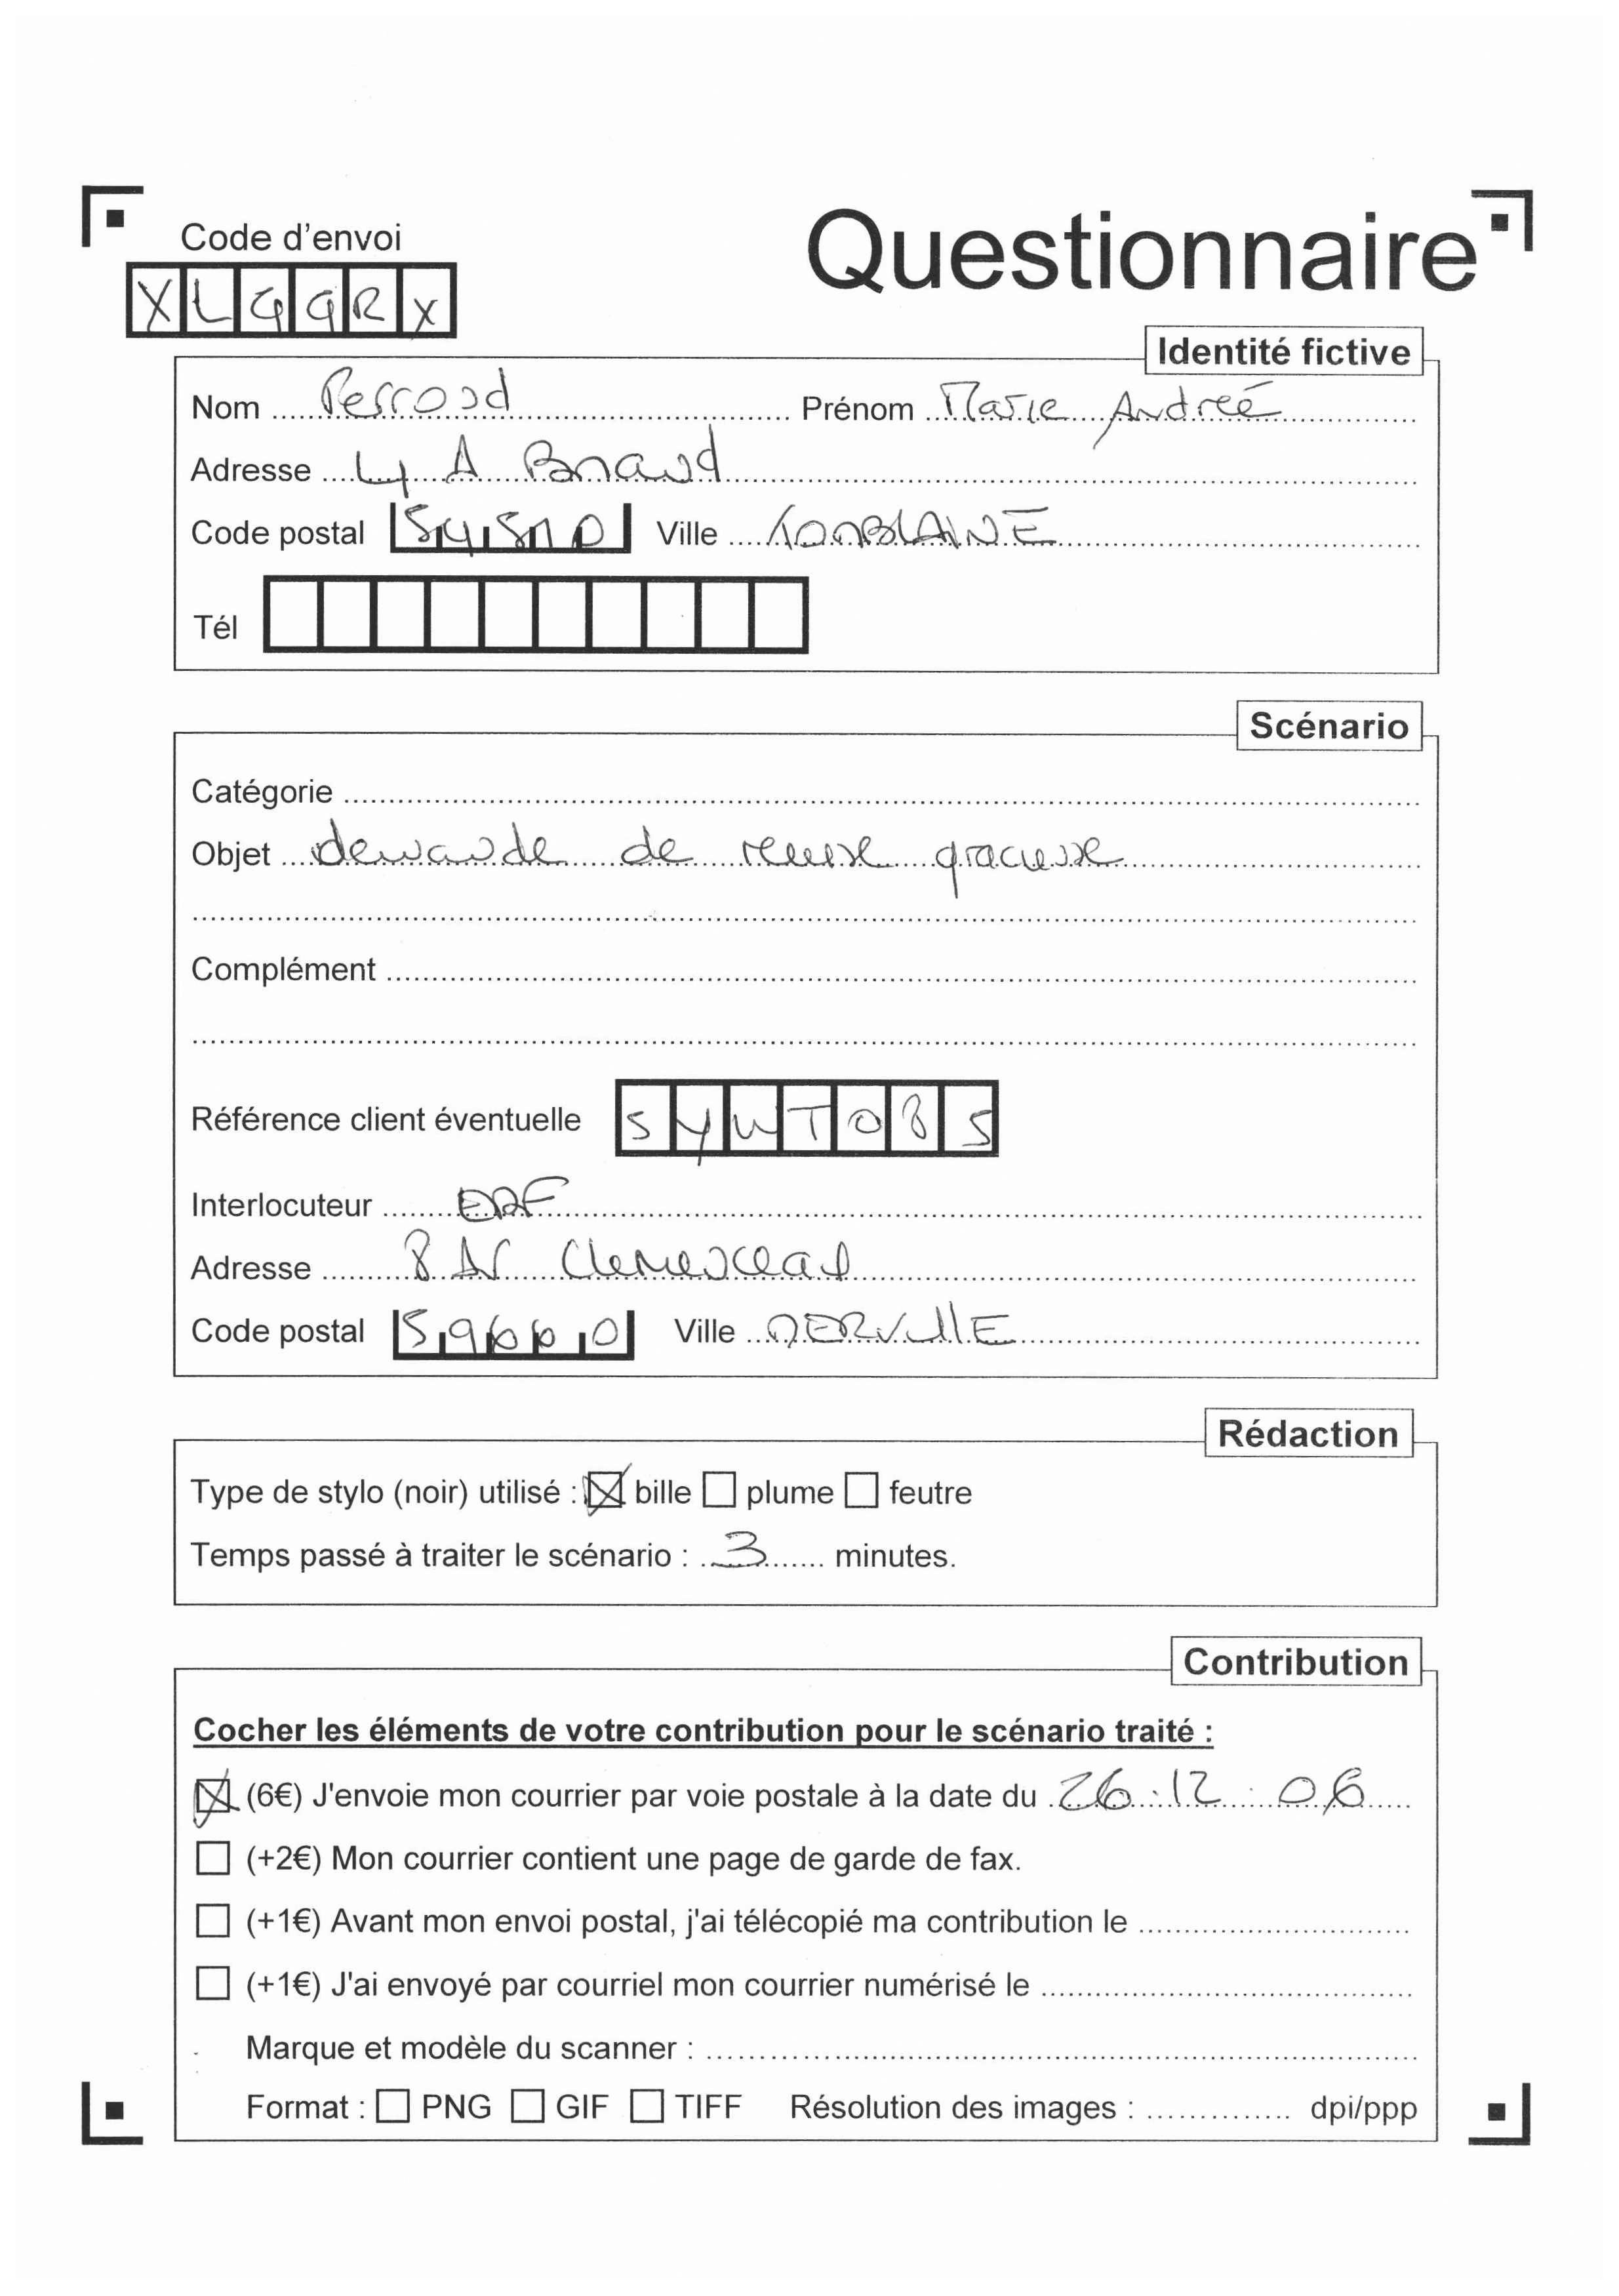 Code d'envoi
Questionnaire
XLGGRX
Identité fictive
Nom Perrood Prénom Marie Andreé
Adresse 4 A Briand
Code postal 54510 Ville TOMBLAINE
Tél
Scénario
Catégorie
Objet demande de remise gracieuse
Complément
Référence client éventuelle SYNTO85
Interlocuteur EDF
Adresse 8 AV Clemenceau
Code postal 59660 Ville MERVILLE
Rédaction
Type de stylo (noir) utilisé : bille plume feutre
Temps passé à traiter le scénario : 3 minutes.
Contribution
Cocher les éléments de votre contribution pour le scénario traité :
(6€) J'envoie mon courrier par voie postale à la date du 26.12.06
(+2€) Mon courrier contient une page de garde de fax.
(+1€) Avant mon envoi postal, j'ai télécopié ma contribution le
(+1€) J'ai envoyé par courriel mon courrier numérisé le
Marque et modèle du scanner :
Format : PNG GIF TIFF Résolution des images : dpi/ppp